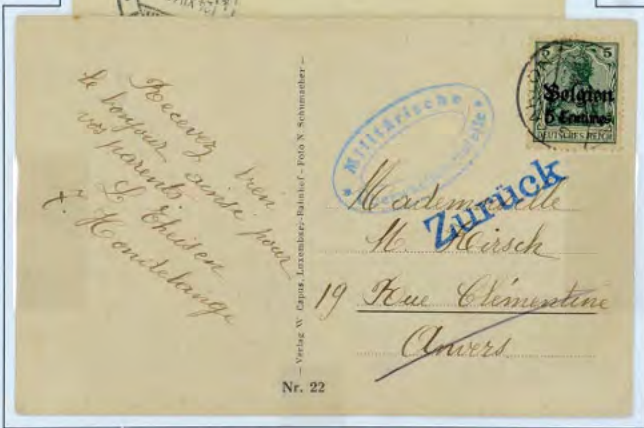 Recevez bien
le bonjour ainsi pour
vos parents.
L Theisen
Hondelange
— Verlag W. Capus, Luxemburg-Bahnhof - Foto N. Schumacher —
Nr. 22
* Militärische *
Zurück
5 5
Belgien
5 Centimes
DEUTSCHES REICH
ARLON
Mademoiselle
M. Hirsch
19 Rue Clémentine
Anvers